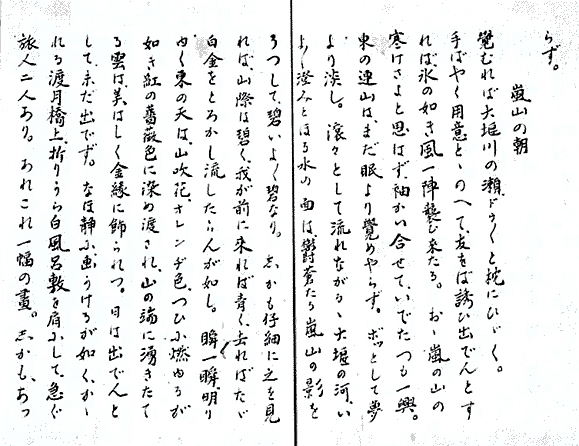 らず。
嵐山の朝
覺むれば大堰川の瀬、ドウ〱と枕にひゞく。
手ばやく用意とゝのへて、友をば誘ひ出でんとす
れば、氷の如き風一陣襲ひ来たる。おゝ嵐の山の
寒けさよと思はず袖かい合せて、いでたつも一興。
東の連山は、まだ眠より覺めやらず。ボッとして夢
より淡し。滾々として流れながるゝ大堰の河、い
よ〱澄みとほる水の面は、欝蒼たる嵐山の影を
うつして、碧いよ〱碧なり。しかも仔細に之を見
れば、山際は碧く、我が前に来れば青く、去ればたゞ
白金をとろかし流したらんが如し。瞬一瞬、明り
ゆく東の天は、山吹花、オレンヂ色、つひに燃ゆるが
如き紅の薔薇色に深め渡され、山の端に湧きたて
る雲は、美はしく金縁に飾られつ。日は出でんと
して、未だ出でず。なほ静に画うけるが如く、かゝ
れる渡月橋上、折りうら白風呂敷を肩にして、急ぐ
旅人二人あり。あれこれ一幅の畫。しかも、あつ